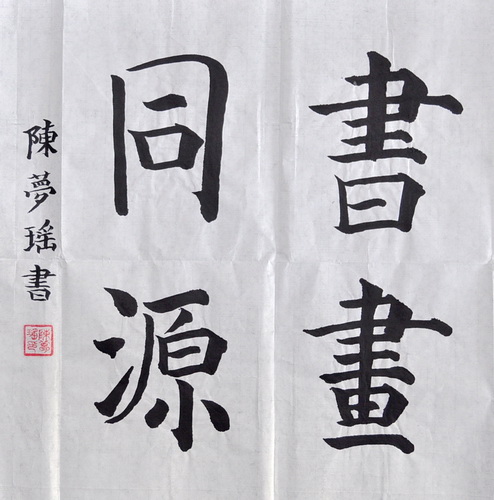 書畫
同源
陳夢瑶書